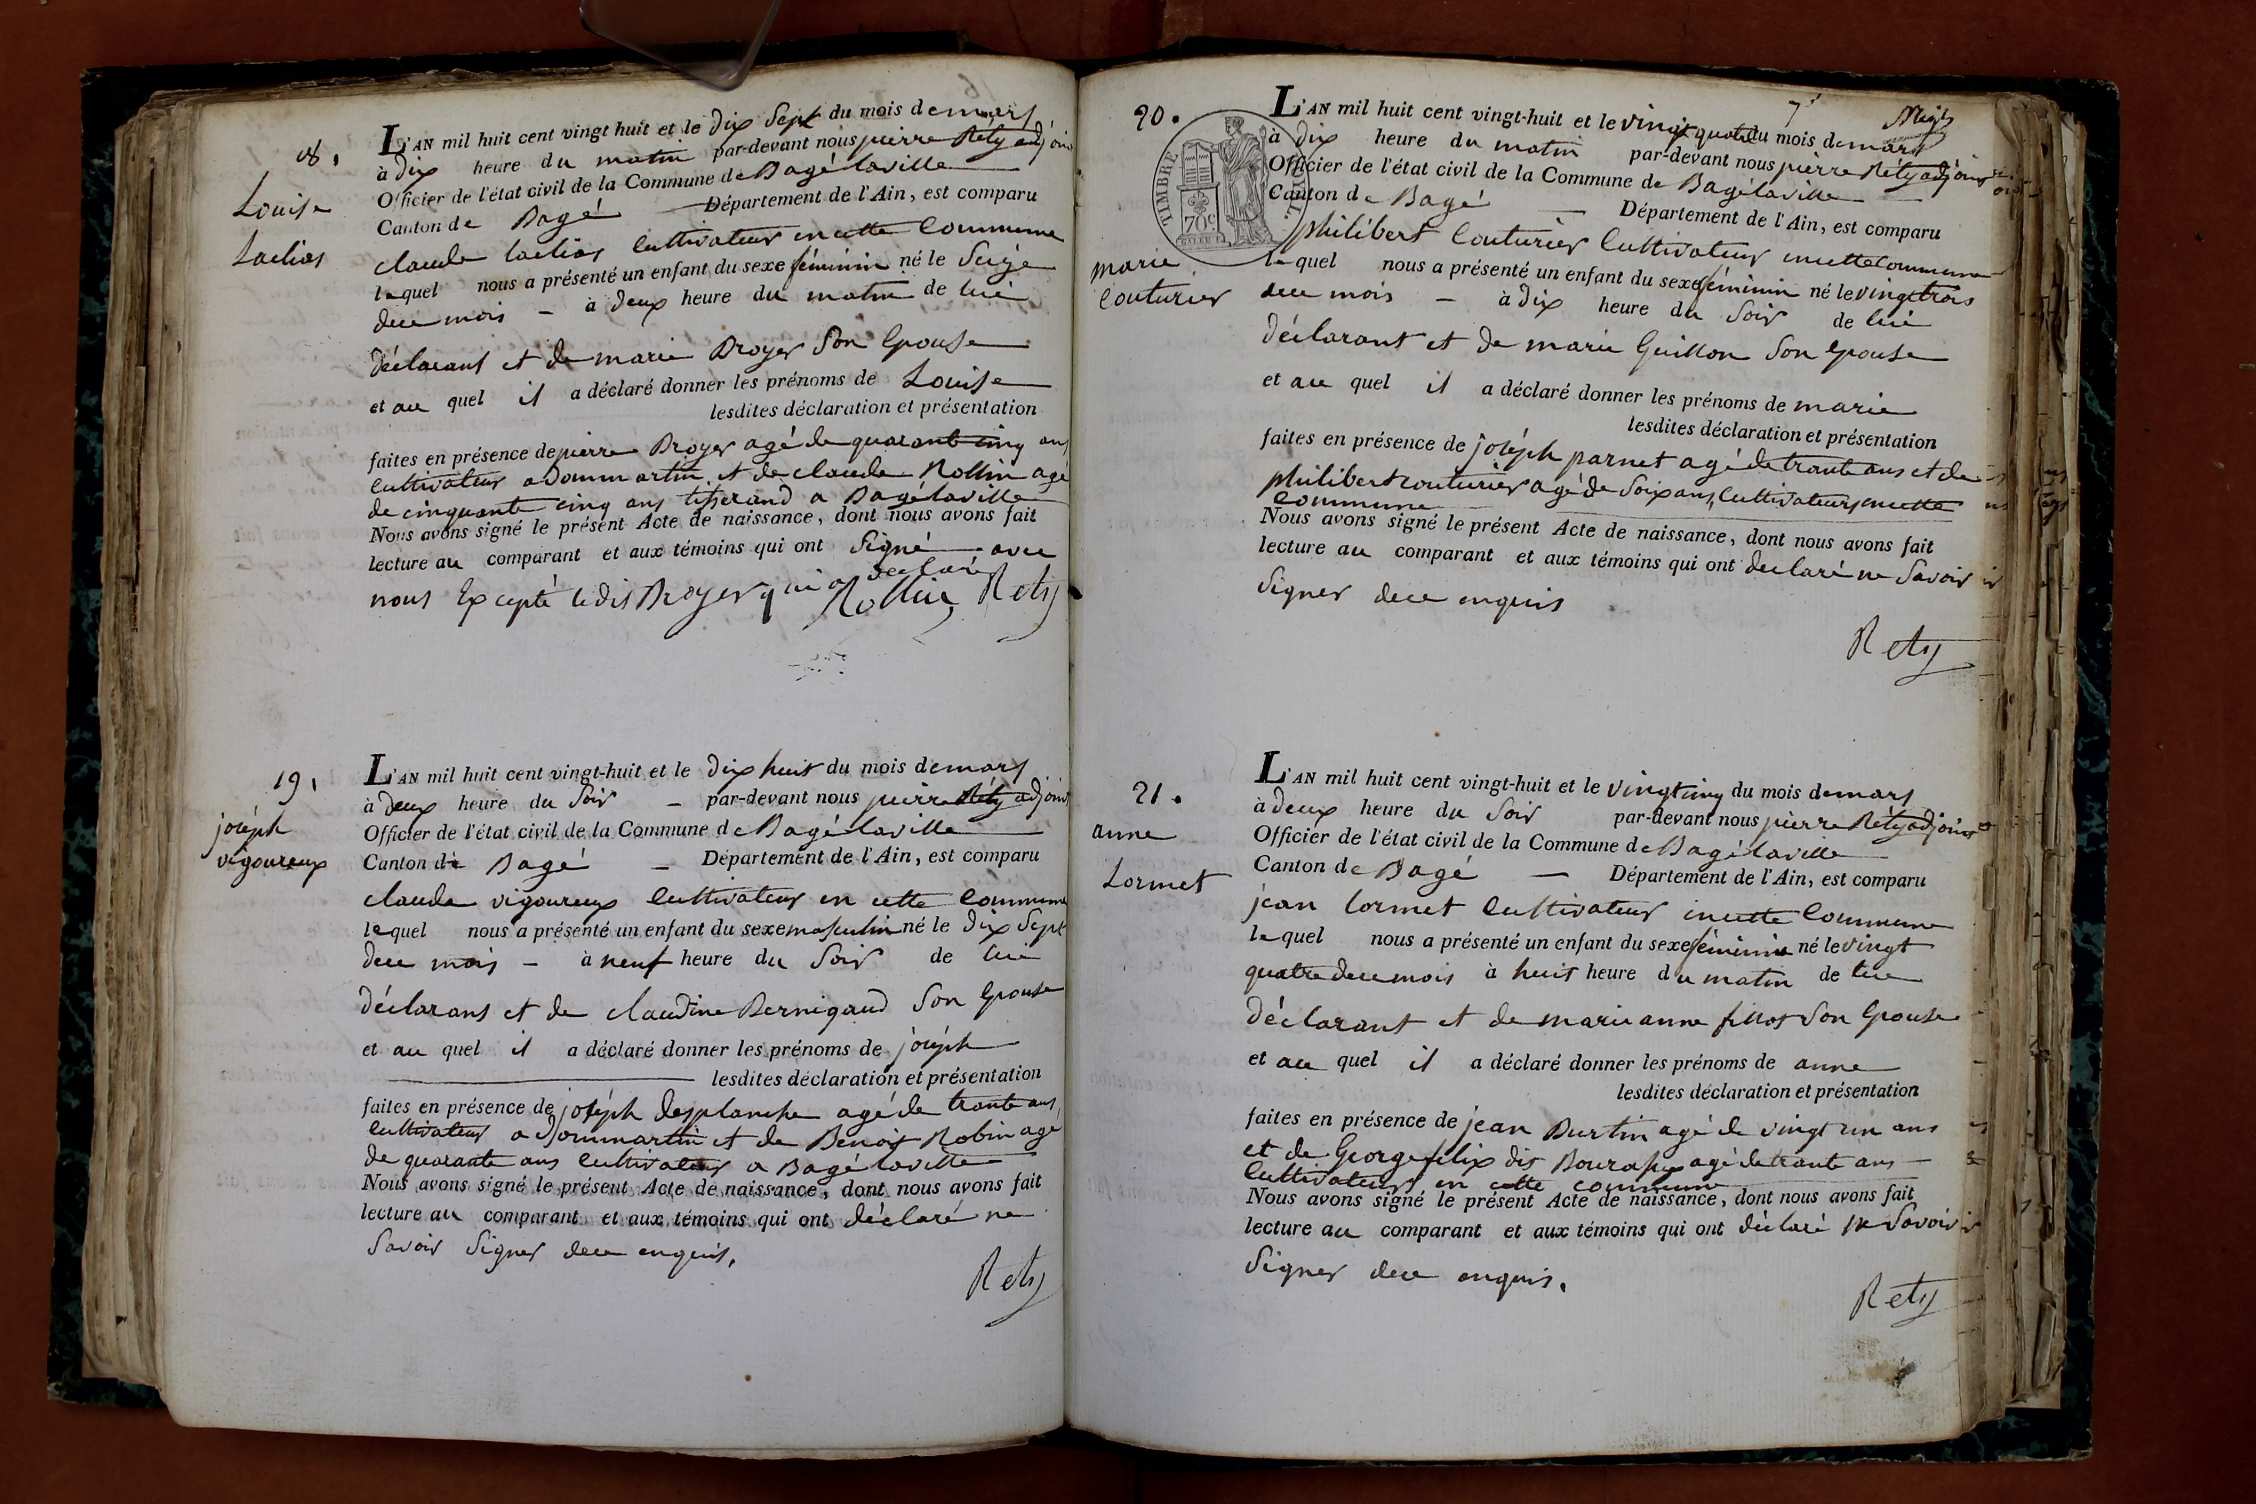 18.
Louise
Laclias
L'AN mil huit cent vingt huit et le dix Sept du mois de mars
à dix heure du matin par-devant nous pierre Réty adjoint
Officier de l'état civil de la Commune de Bagé laville
Canton de Bagé — Département de l'Ain, est comparu
claude laclias Cultivateur en cette Commune
lequel nous a présenté un enfant du sexe féminin né le Seize
dece mois — à deux heure du matin de lui
déclarant et de marie Broyer Son Epouse
et au quel il a déclaré donner les prénoms de Louise
lesdites déclaration et présentation
faites en présence de pierre Broyer agé de quarante cinq ans
Cultivateur a Dommartin et de claude Rollin agé
de cinquante cinq ans tisserand a Bagé laville
Nous avons signé le présent Acte de naissance, dont nous avons fait
lecture au comparant et aux témoins qui ont Signé avec
nous Excepté ledit Broyer qui a declaré
Rollin Rety
19.
joséph
vigoureux
L'AN mil huit cent vingt-huit et le dix huit du mois de mars
à deux heure du Soir — par-devant nous pierre Réty adjoint
Officier de l'état civil de la Commune de Bagé laville
Canton de Bagé — Département de l'Ain, est comparu
claude vigoureux Cultivateur en cette Commune
lequel nous a présenté un enfant du sexe masculin né le dix Sept
dece mois — à neuf heure du Soir de lui
déclarant et de claudine Bernigaud Son Epouse
et au quel il a déclaré donner les prénoms de joséph
lesdites déclaration et présentation
faites en présence de joséph desplanche agé de trante ans,
Cultivateur a dommartin et de Benoit Robin agé
de quarante ans Cultivateur a Bagé laville
Nous avons signé le présent Acte de naissance, dont nous avons fait
lecture au comparant et aux témoins qui ont déclaré ne
Savoir Signer dece enquis.
Rety
7
20.
TIMBRE
70c
marie
Couturier
L'AN mil huit cent vingt-huit et le vingt quatre du mois de mars
à dix heure du matin par-devant nous pierre Réty adjoint
Officier de l'état civil de la Commune de Bagé laville
Canton de Bagé — Département de l'Ain, est comparu
philibert Couturier Cultivateur en cette Commune
lequel nous a présenté un enfant du sexe féminin né le vingt trois
dece mois — à dix heure du Soir de lui
déclarant et de marie Guillon Son Epouse
et au quel il a déclaré donner les prénoms de marie
lesdites déclaration et présentation
faites en présence de joséph parnet agé de trante ans et de
philibert couturier agé de Soix ans, Cultivateurs en cette
Commune
Nous avons signé le présent Acte de naissance, dont nous avons fait
lecture au comparant et aux témoins qui ont declaré ne Savoir
Signer dece enquis
Rety
21.
anne
Lormet
L'AN mil huit cent vingt-huit et le vingt cinq du mois de mars
à deux heure du Soir par-devant nous pierre Réty adjoint
Officier de l'état civil de la Commune de Bagé laville
Canton de Bagé — Département de l'Ain, est comparu
jean Lormet Cultivateur en cette Commune
lequel nous a présenté un enfant du sexe féminin né le vingt
quatre dece mois à huit heure du matin de lui
déclarant et de marie anne fillot Son Epouse
et au quel il a déclaré donner les prénoms de anne
lesdites déclaration et présentation
faites en présence de jean Burtin agé de vingt un ans
et de George felix dit agé de trante ans —
Cultivateurs en cette commune
Nous avons signé le présent Acte de naissance, dont nous avons fait
lecture au comparant et aux témoins qui ont déclaré ne Savoir
Signer dece enquis.
Rety